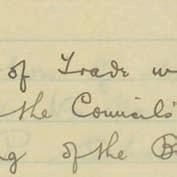 of Trade w
the Councils'
ng of the B